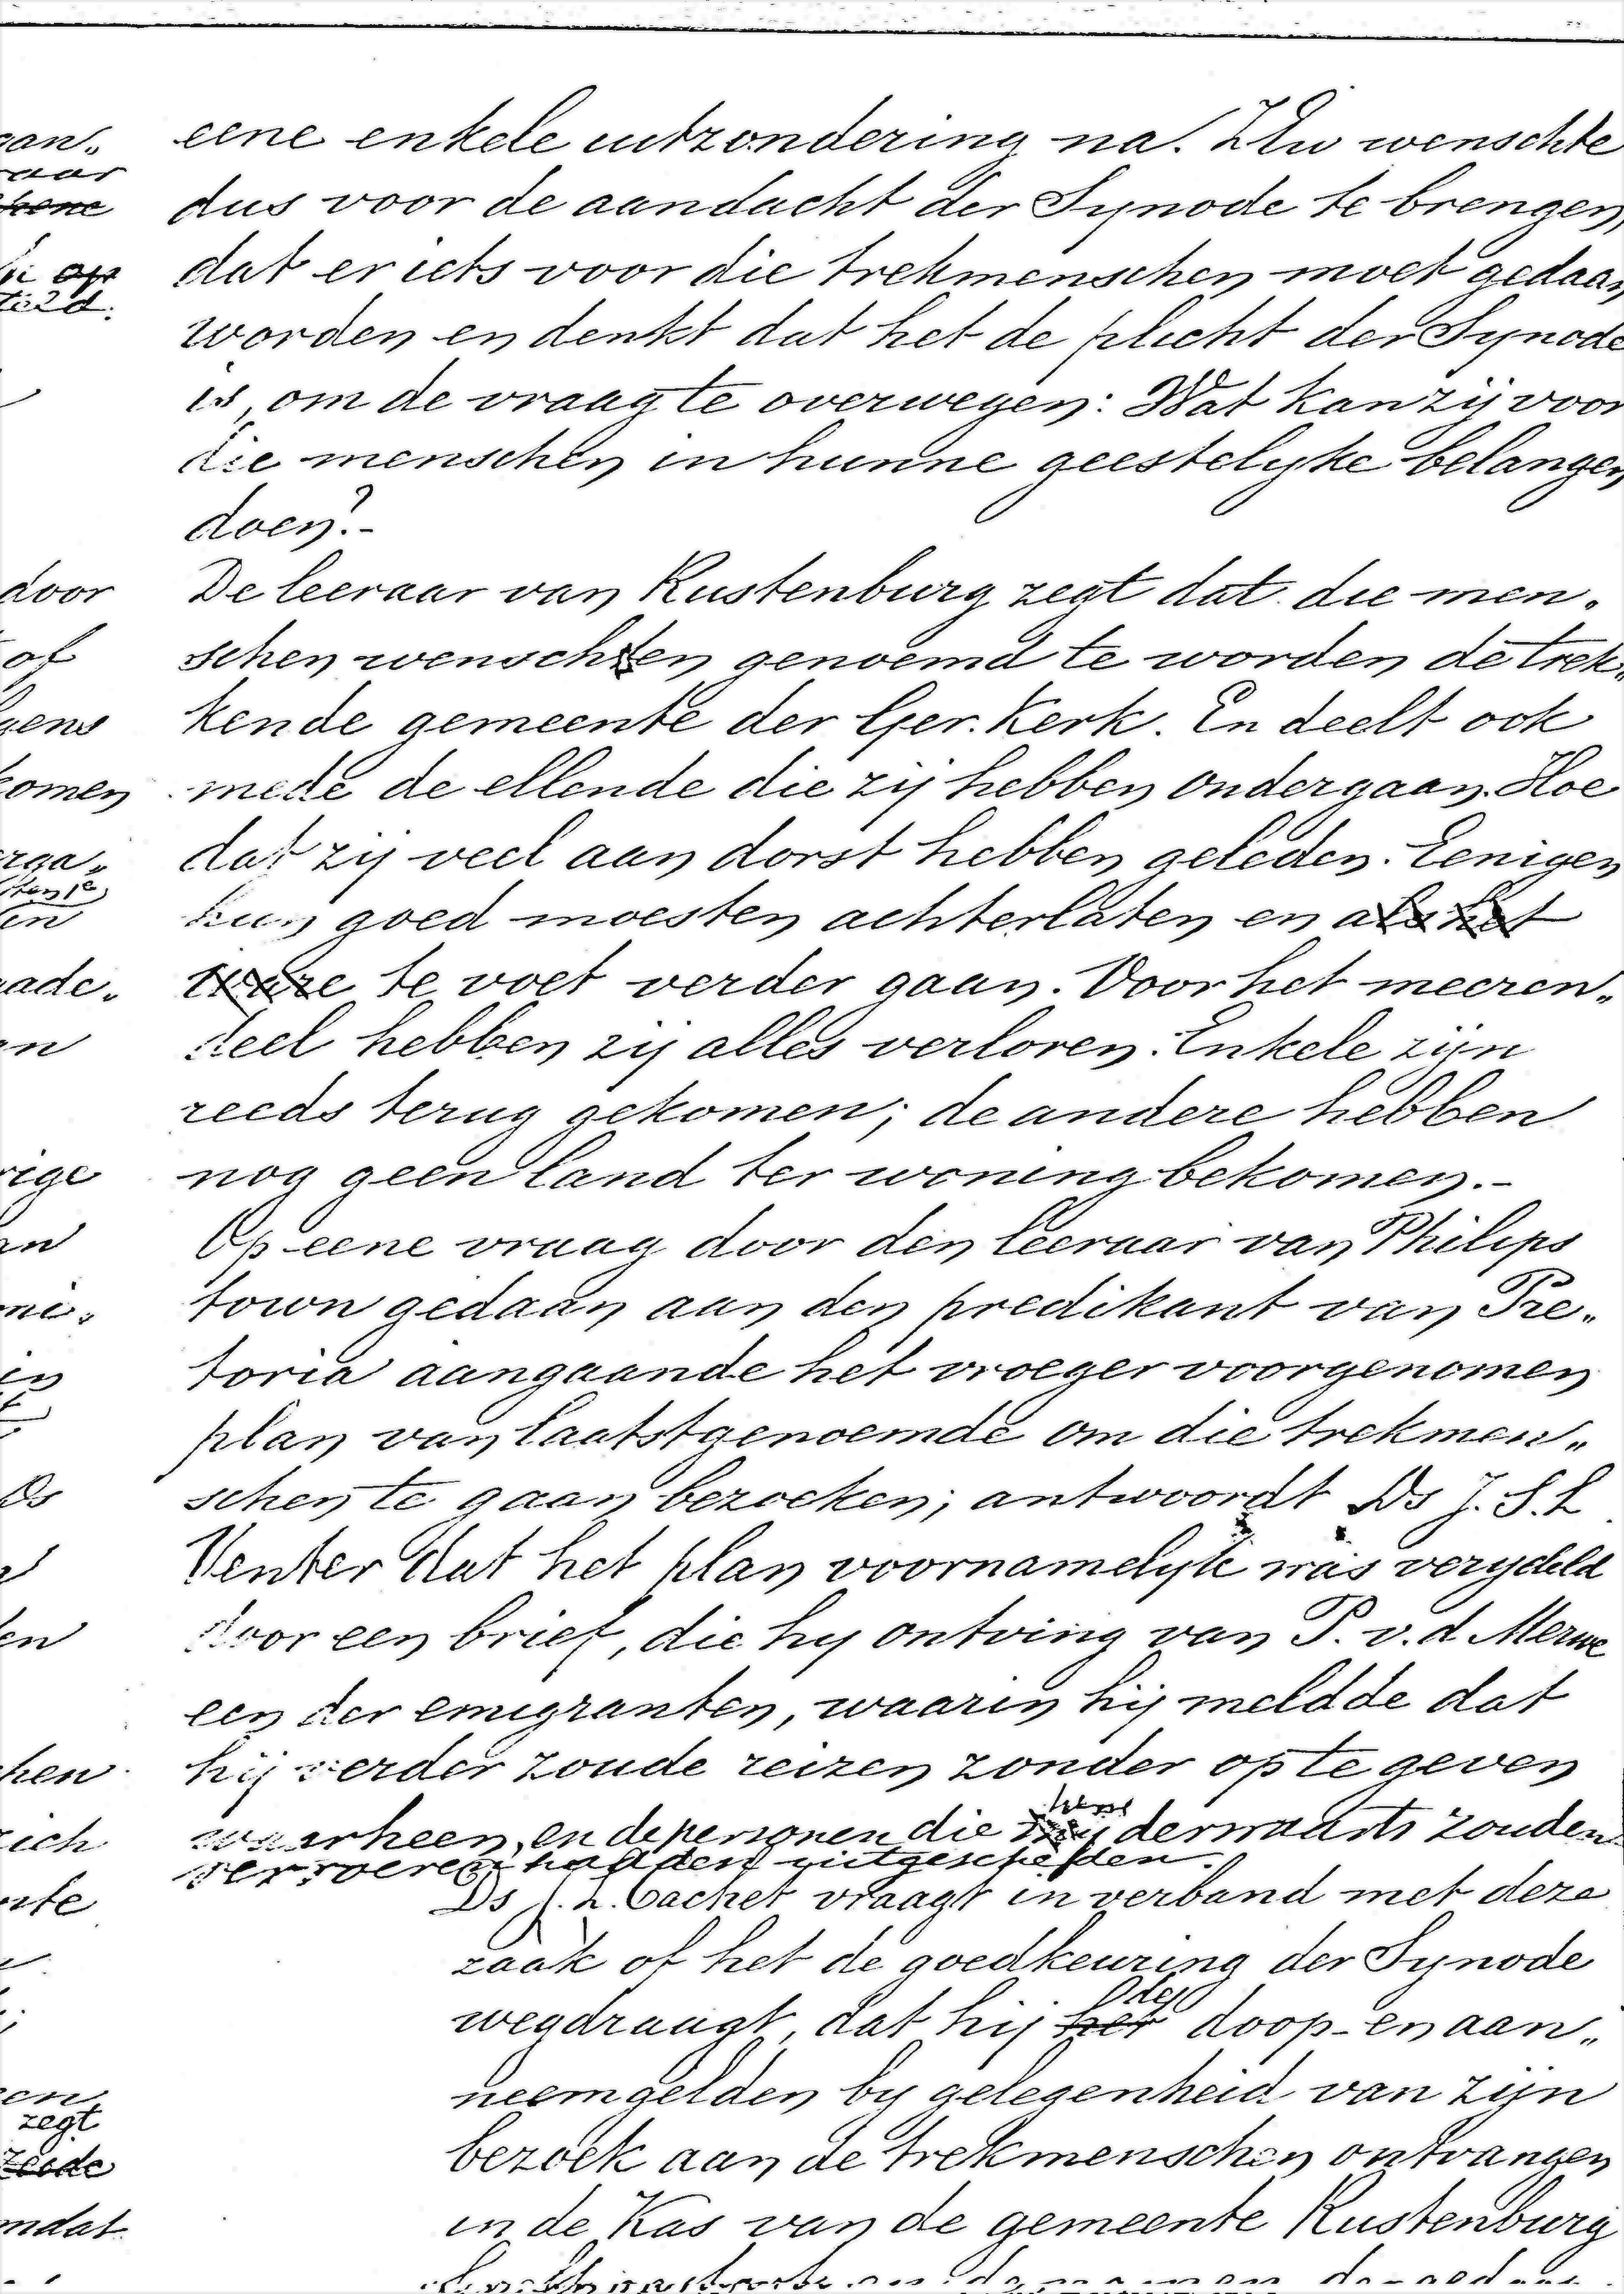 eene enkele uitzondering na. ZEw wenschte
dus voor de aandacht der Synode te brengen,
dat er iets voor die trekmenschen moet gedaan
worden en denkt dat het de plicht der Synode
is, om de vraag te overwegen: Wat kan zij voor
die menschen in hunne geestelyke belangen
doen?-
De leeraar van Rustenburg zegt dat die men„
schen wenschten genoemd te worden de trek„
kende gemeente der Ger. Kerk. En deelt ook
mede de ellende die zij hebben ondergaan. Hoe
dat zij veel aan dorst hebben geleden. Eenigen
hun goed moesten achterlaten en als het
ware te voet verder gaan. Voor het meeren„
deel hebben zij alles verloren. Enkele zijn
reeds terug gekomen; de andere hebben
nog geen land ter woning bekomen.-
Op eene vraag door den leeraar van Philips
town gedaan aan den predikant van Pre„
toria aangaande het vroeger voorgenomen
plan van laatstgenoemde om die trekmen„
schen te gaan bezoeken; antwoordt Ds J. S. L
Venter dat het plan voornamelyk was verydeld
door een brief, die hy ontving van P. v. d Merwe
een der emigranten, waarin hij meldde dat
hij verder zoude reizen zonder op te geven
waarheen, en de personen die hem derwaarts zouden
vervoeren hadden uitgescheiden.
Ds J. L. Cachet vraagt in verband met deze
zaak of het de goedkeuring der Synode
wegdraagt, dat hij het de doop- en aan„
neemgelden by gelegenheid van zijn
bezoek aan de trekmenschen ontvangen
in de Kas van de gemeente Rustenburg